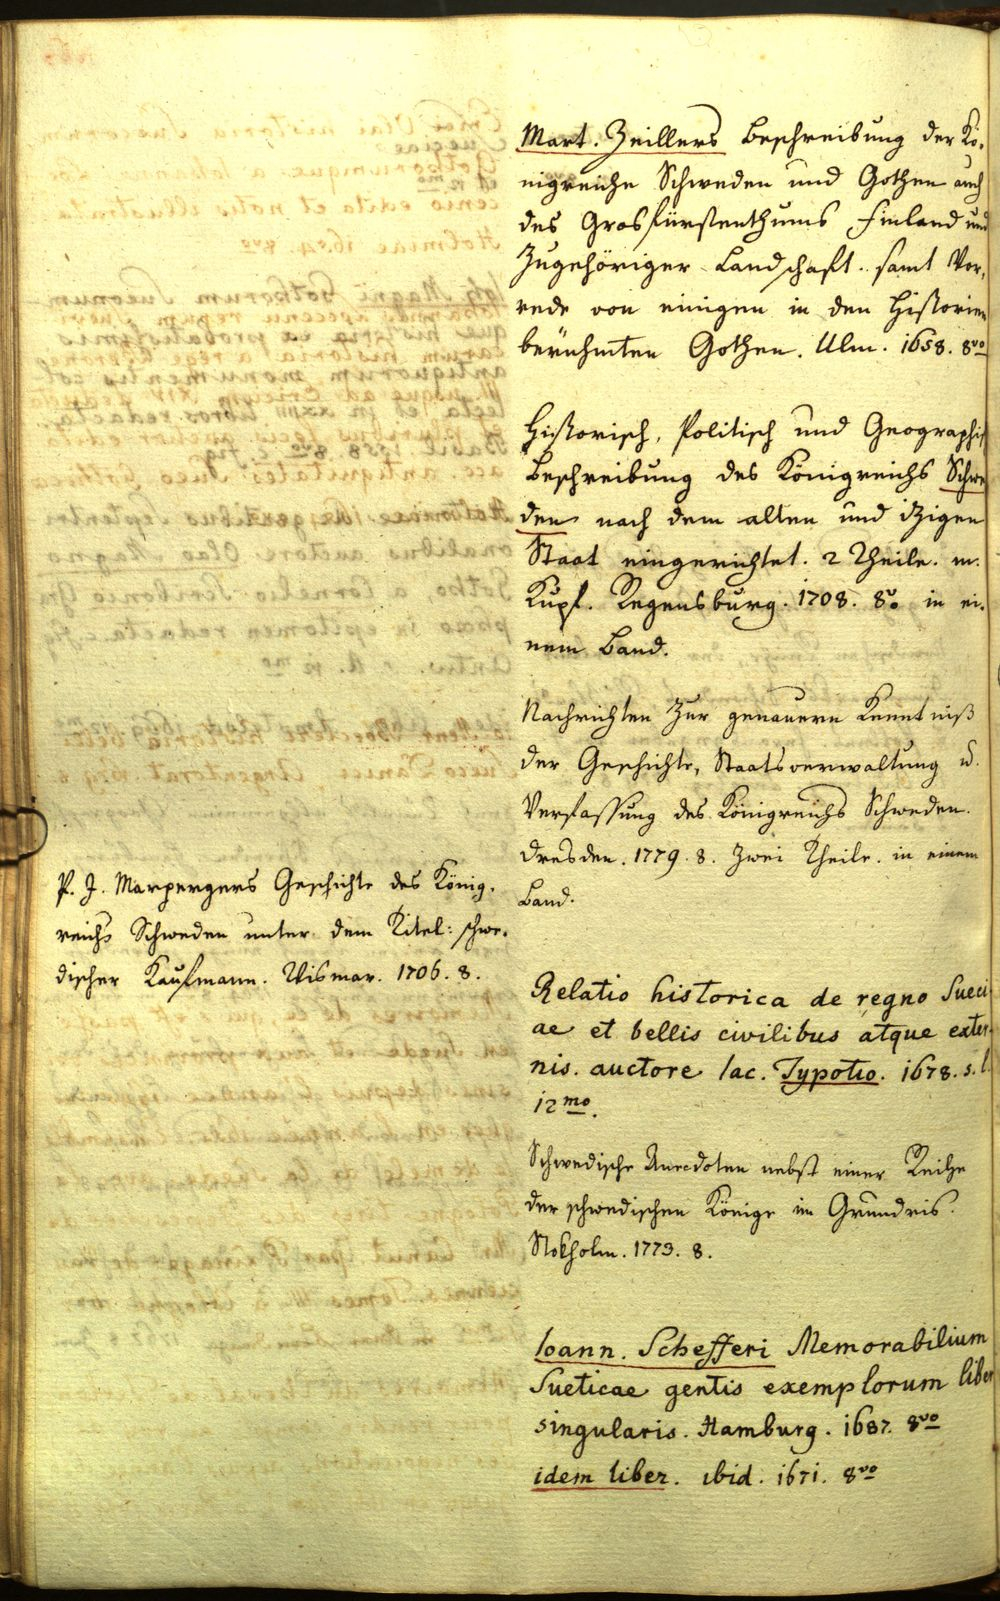 Mart. Zeillers Beschreibung der Kö-
nigreiche Schweden und Gothen auch
des Grosfürstenthums Finland und
Zugehöriger Landschaft. samt Vor-
rede von einigen in den Historien
berühmten Gothen. Ulm. 1658. 8vo
Historisch, Politisch und Geographis
Beschreibung des Königreichs Schwe
den nach dem alten und itzigen
Staat eingerichtet. 2 Theile. m.
Kupf. Regensburg. 1708. 8vo in ei-
nem Band.
Nachrichten Zur genauern Kenntniß
der Geschichte, Staatsverwaltung u.
Verfassung des Königreichs Schweden.
Dresden. 1779. 8. Zwei Theile. in einem
Band.
P. J. Marpergers Geschichte des König-
reichs Schweden unter dem Titel: schwe-
discher Kaufmann. Wismar. 1706. 8.
Relatio historica de regno Sueci
ae et bellis civilibus atque exter-
nis. auctore Iac. Typotio. 1678. s. l.
12mo.
Schwedische Anecdoten nebst einer Reihe
der schwedischen Könige im Grundris.
Stokholm. 1773. 8.
Ioann. Schefferi Memorabilium
Sueticae gentis exemplorum liber
singularis. Hamburg. 1687. 8vo
idem liber. ibid. 1671. 8vo